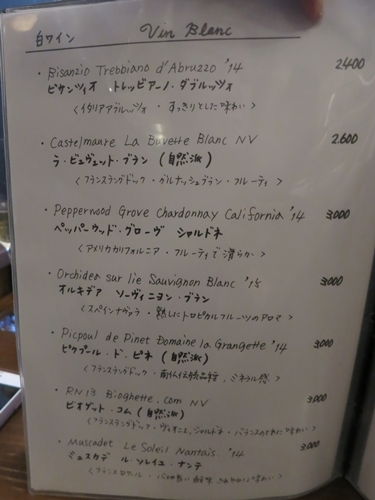 白ワイン Vin Blanc
・Bisanzio Trebbiano d'Abruzzo '14 2400
ビサンツィオ トレッビアーノ・ダブルッツォ
<イタリアアブルッツォ・すっきりとした味わい>
・Castelmaure La Buvette Blanc NV 2.600
ラ・ビュヴェット・ブラン(自然派)
<フランスラングドック・グルナッシュブラン・フルーティ>
・Pepperwood Grove Chardonnay California '14 3,000
ペッパーウッド・グローヴ シャルドネ
<アメリカカリフォルニア・フルーティで滑らか>
・Orchidea sur lie Sauvignon Blanc '15 3,000
オルキデア ソーヴィニヨン・ブラン
<スペインナヴァラ・熟したトロピカルフルーツのアロマ>
・Picpoul de Pinet Domaine la Grangette '14 3,000
ピクプール・ド・ピネ(自然派)
<フランスラングドック・南仏伝統品種,ミネラル感>
・RN13 Bioghette.com NV 3,000
ビオゲット・コム(自然派)
<フランスラングドック・ヴィオニエ,シャルドネ・バランスのとれた味わい>
・Muscadet Le Soleil Nantais '14 3,000
ミュスカデ ル・ソレイユ・ナンテ
<フランスロワール・味わい>